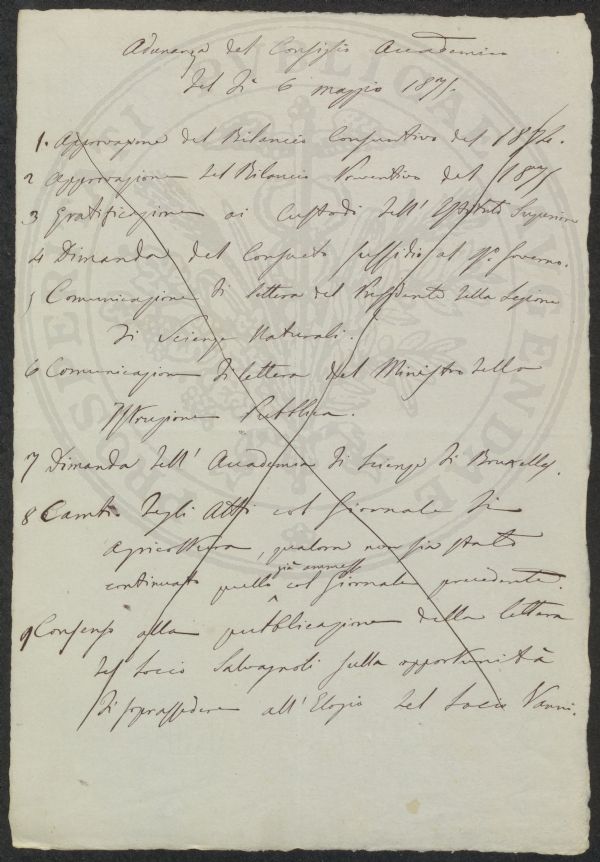 Adunanza del Consiglio Accademico
del dì 6 maggio 1875.
1. Approvazione del Bilancio Consuntivo del 1874.
2 Approvazione del Bilancio Preventivo del 1875
3 Gratificazione ai Custodi dell' Istituto Superiore
4 Dimanda del Consueto sussidio al Governo.
5 Comunicazione di lettera del Presidente della Sezione
di Scienze Naturali.
6 Comunicazione di lettera del Ministro della
Istruzione Pubblica.
7 Dimanda dell' Accademia di Scienze di Bruxelles.
8 Cambio degli Atti col Giornale di
Agricoltura, qualora non sia stato
già ammesso
continuato quello col Giornale precedente.
9 Consenso alla pubblicazione della lettera
del Socio Salvagnoli sulla opportunità
di soprassedere all' Elogio del Socio Vanni.
PROSPERITATI PUBLICAE AUGENDAE